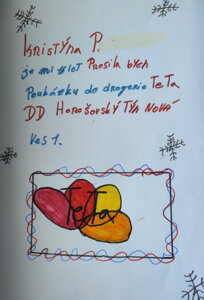 Kristýna P.
je mi 11 let Prosila bych
Poukázku do drogerie TeTa
DD Horšovský Týn Nové
Ves 1.
TeTa